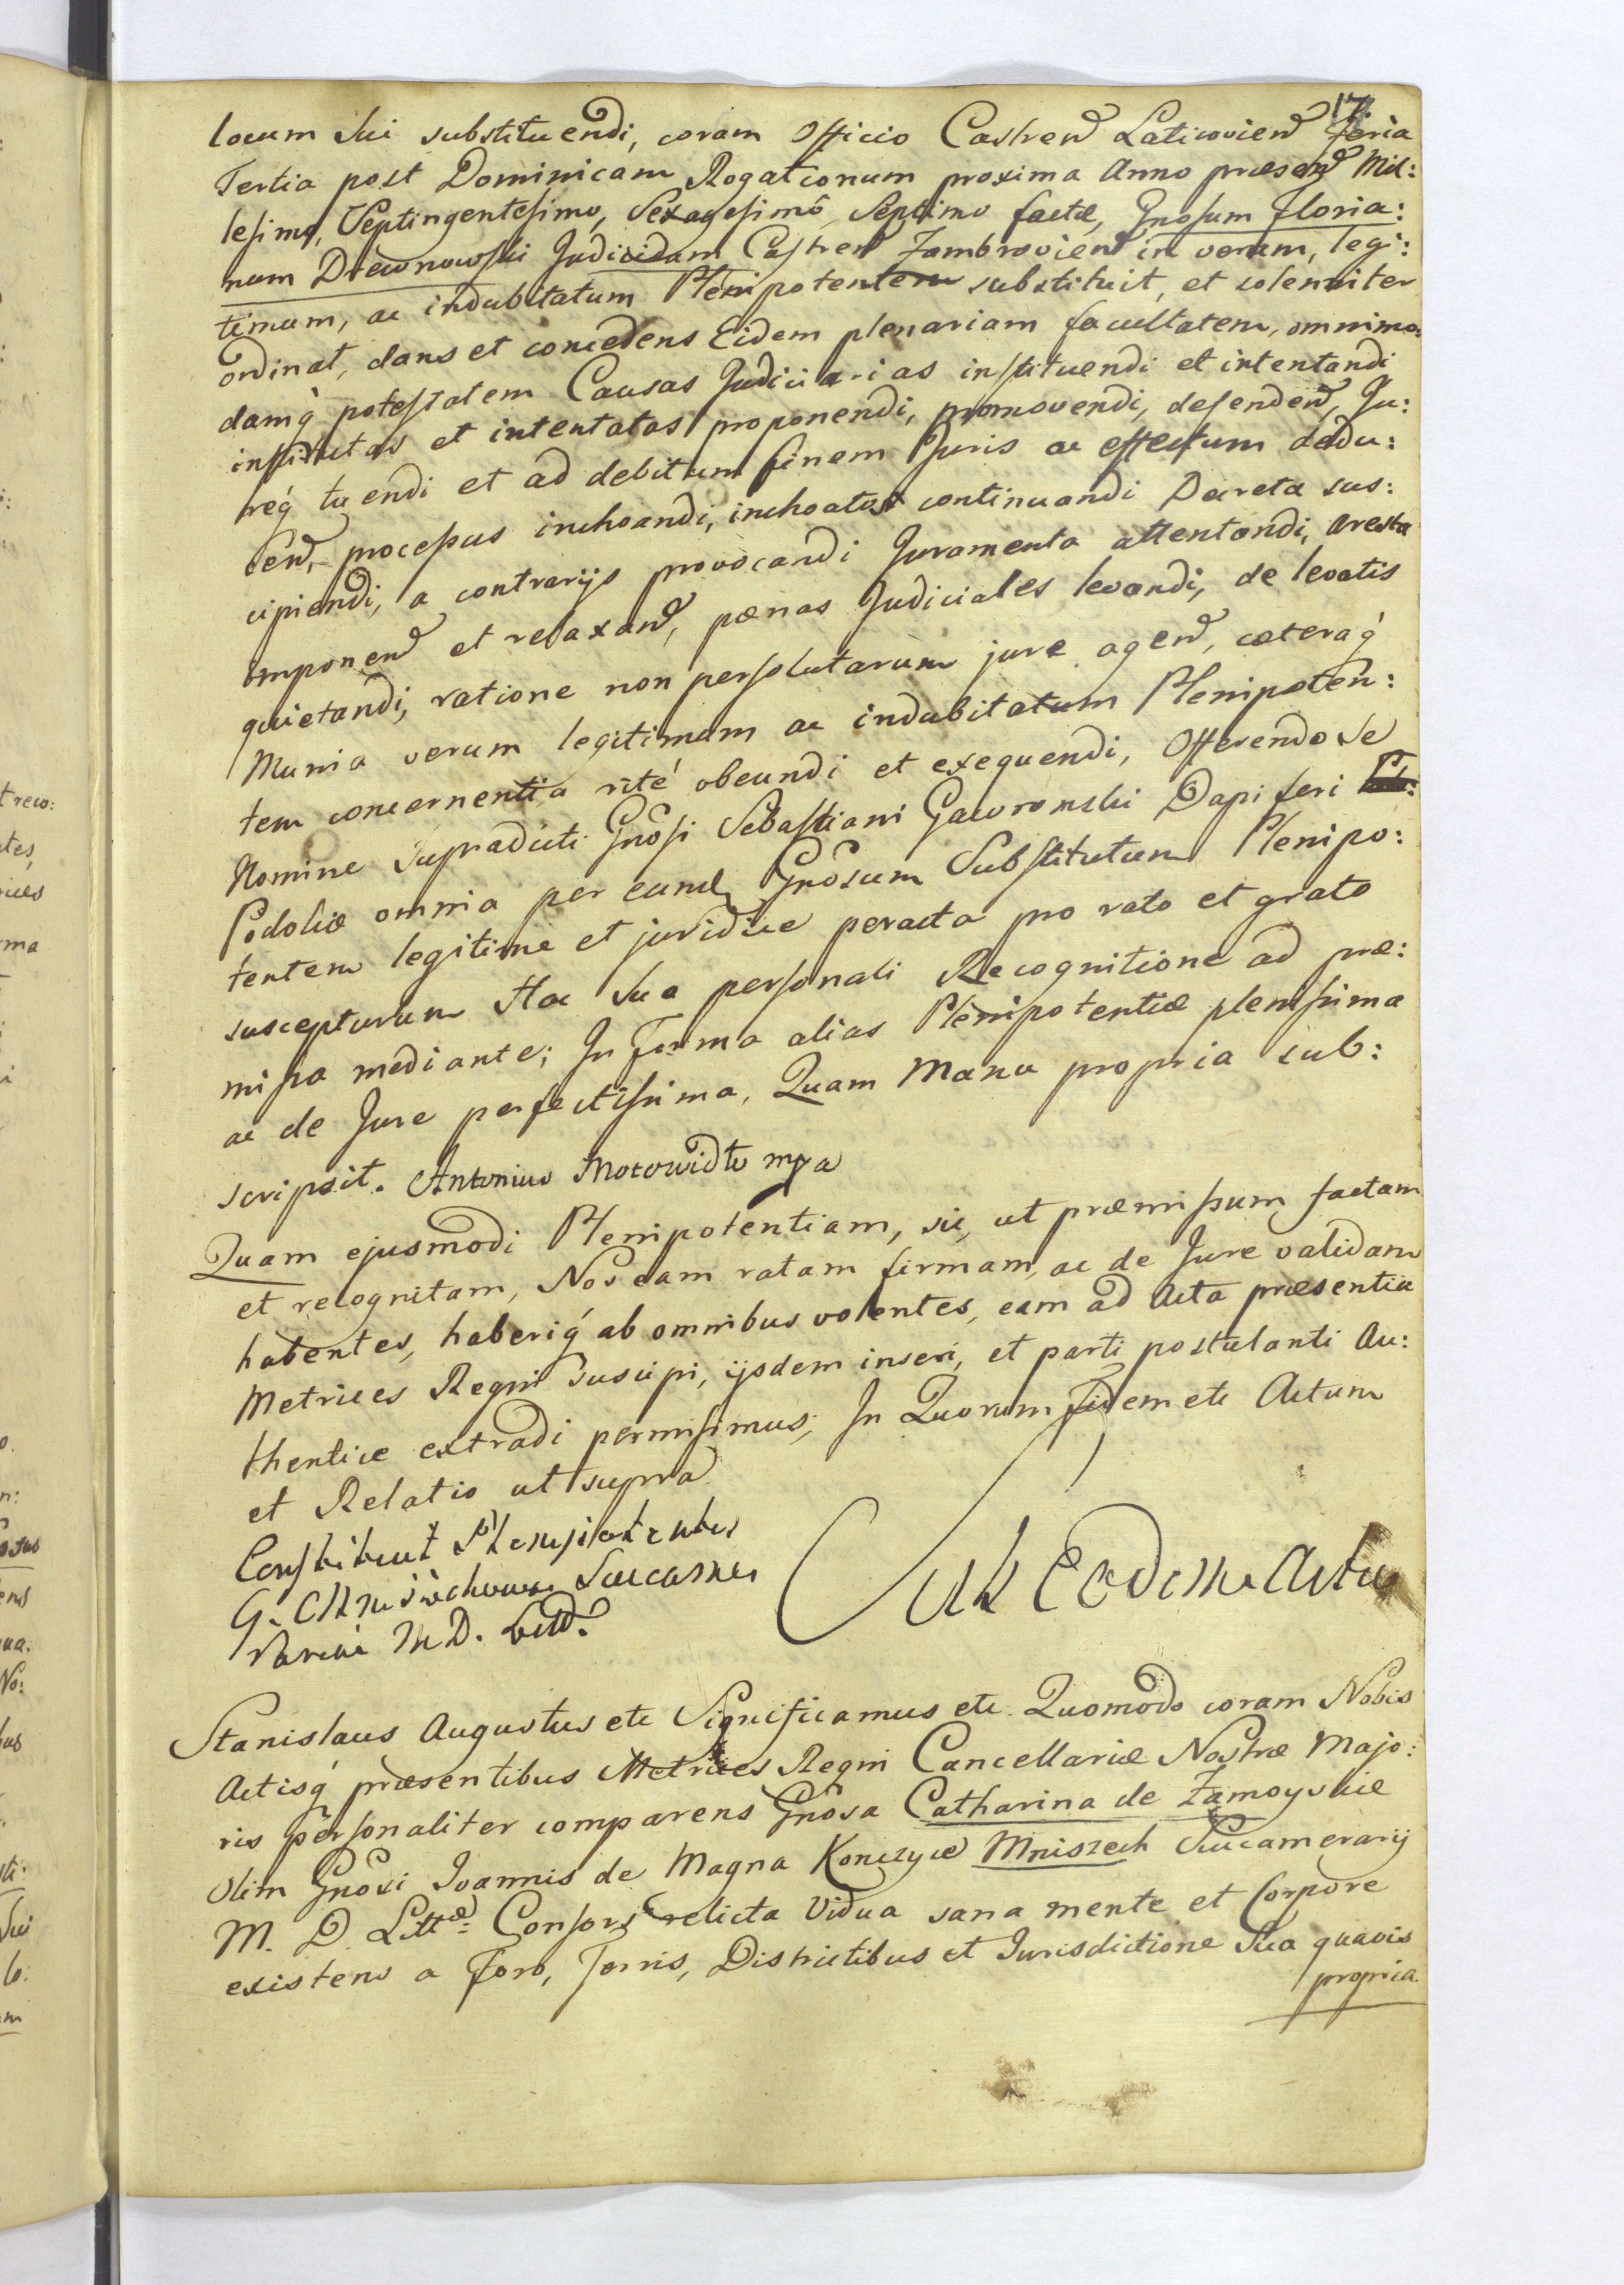 17
locum Sui substituendi, coram Officio Castren Laticovien feria
Tertia post Dominicam Rogationum proxima Anno præsen Mil:
lesimo, Septingentesimo, Sexagesimô Septimo factæ, Gnosum Floria:
num Drewnowski Judicidam Castren Zambrovien in verum, legi:
timum, ac indubitatum Plenipotentem substituit, et solenniter
ordinat, dans et concedens Eidem plenariam facultatem, omnimo:
damq́ potestatem Causas Judiciarias instituendi et intentandi
institutas et intentatas proponendi, promovendi, defenden, Ju:
req́ tuendi et ad debitum finem Juris ac effectum dedu:
cen, processus inchoandi, inchoatos continuandi Decreta sus:
cipiendi, a contrarijs provocandi Juramenta attentandi, aresta
imponen et relaxan, pœnas Judiciales levandi, de levatis
quietandi, ratione non persolutarum jure agen, cæteraq́
Munia verum legitimum ac indubitatum Plenipoten:
tem concernentia rité obeundi et exequendi, Offerendo Se
Nomine Supradicti Gnôsi Sebastiani Gaworonski Dapiferi
Podoliæ omnia per eund Gnôsum Substitutum Plenipo:
tentem legitime et juridice peracta pro rato et grato
suscepturum Hac Sua personali Recognitione ad præ:
missa mediante; In Forma alias Plenipotentiæ plenissima
ac de Jure perfectissima, Quam Manu propria sub:
scripsit. Antonius Motowidlo mpa
Quam ejusmodi Plenipotentiam, sic, ut præmissum factam
et recognitam, Nos eam ratam firmam, ac de Jure validam
habentes, haberiq́ ab omnibus volentes, eam ad Acta præsentia
Metrices Regni Suscipi, ijsdem inseri, et parti postulanti Au:
thentice extradi permisimus; In Quorum fidem etc Actum
et Relatio ut supra
Constituit Plenipotentes
G. Mnischowa Succamer
M D. Litt.
Ut Eodem Actu
Stanislaus Augustus etc Significamus etc Quomodo coram Nobis
Actisq́ præsentibus Metrices Regni Cancellariæ Nostræ Majo:
ris personaliter comparens Gnôsa Catharina de Zamoyskie
Olim Gnôsi Joannis de Magna Konczyce Mniszech Succamerarij
M. D. Littæ: Consors relicta Vidua sana mente et Corpore
existens a Foro, Terris, Districtibus et Jurisdictione Sua quavis
propria